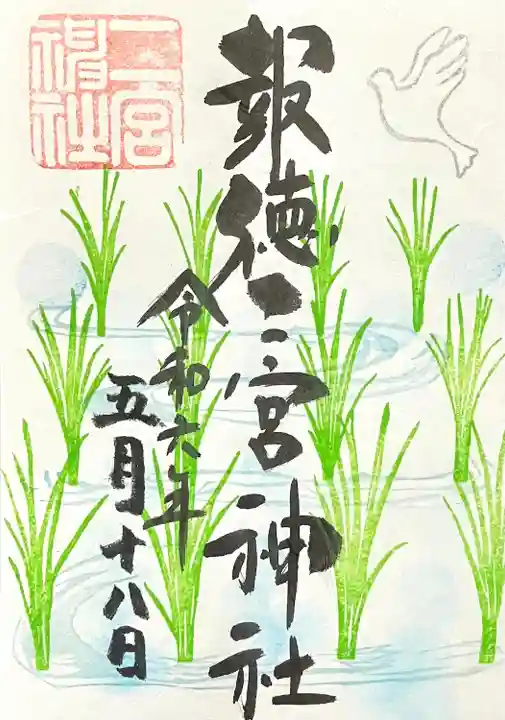 報徳二宮神社
令和六年
五月十八日
二宮神社